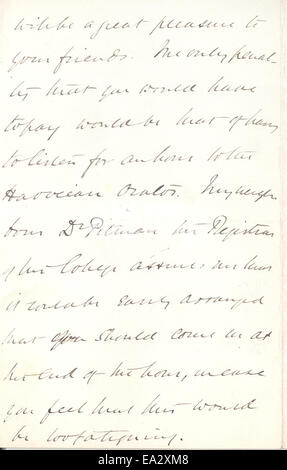 will be a great pleasure to
your friends. The only penal-
ty that you would have
to pay would be that of having
to listen for an hour to the
Harveian Orator. My neigh-
bour Dr Pitman the Registrar
of the College assures me that
it could be easily arranged
that you should come in at
the end of the hour, in case
you feel that this would
be too fatiguing.
alamy stock photo
EA2XM8
www.alamy.com